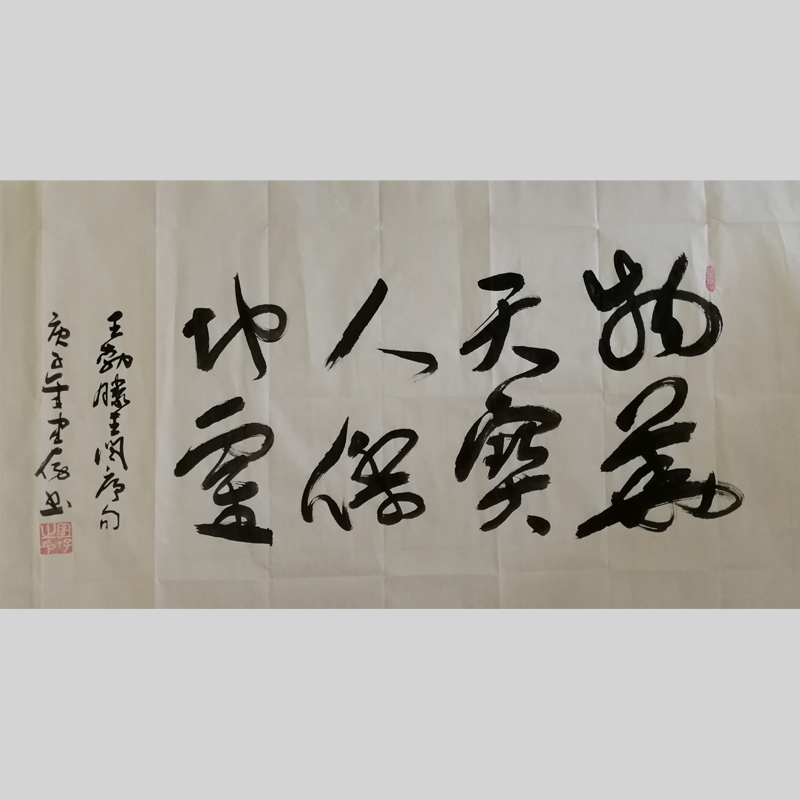 物華
天寶
人傑
地靈
王勃滕王阁序句
庚子年
书